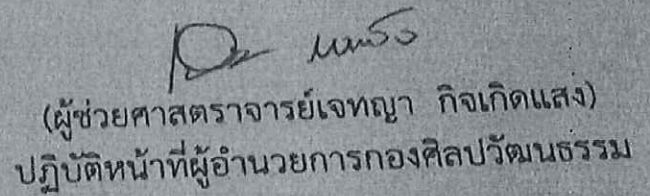 (ผู้ช่วยศาสตราจารย์เจทญา กิจเกิดแสง)
ปฏิบัติหน้าที่ผู้อำนวยการกองศิลปวัฒนธรรม